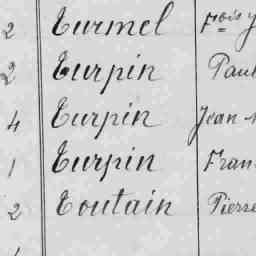 2 Turmel Fois
2 Turpin Paul
4 Turpin Jean
1 Turpin Fran
2 Toutain Pierre